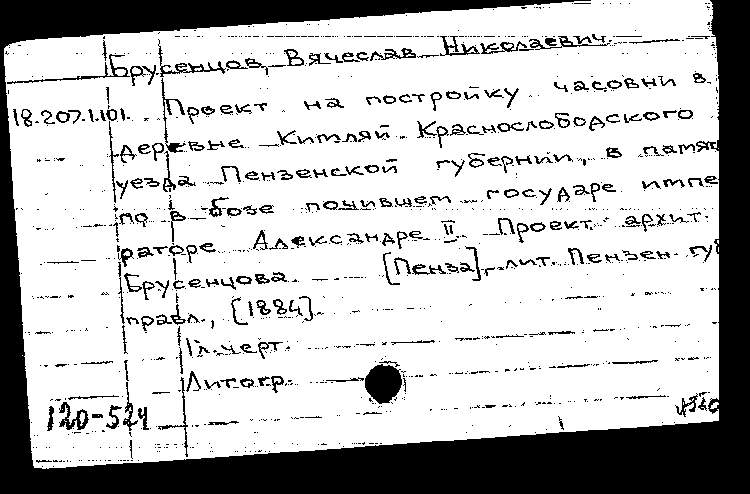 Брусенцов, Вячеслав Николаевич.
18.207.1.101. Проект на постройку часовни в
деревне Китляй Краснослободского
уезда Пензенской губернии, в памят
по в бозе почившем государе импе
раторе Александре II. Проект архит.
Брусенцова. [Пенза], лит. Пензен. губ
правл., [1884].
1 л. черт.
Литогр.
120-524